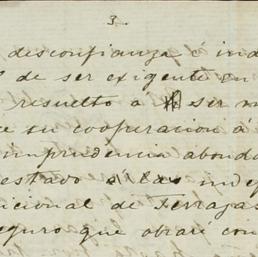 3.
desconfianza é ind
de ser exigente en
resuelto á ser m
e su cooperacion á
imprudencia abonda
estado si las ind
cional de Terrazas
eguro que obrará con